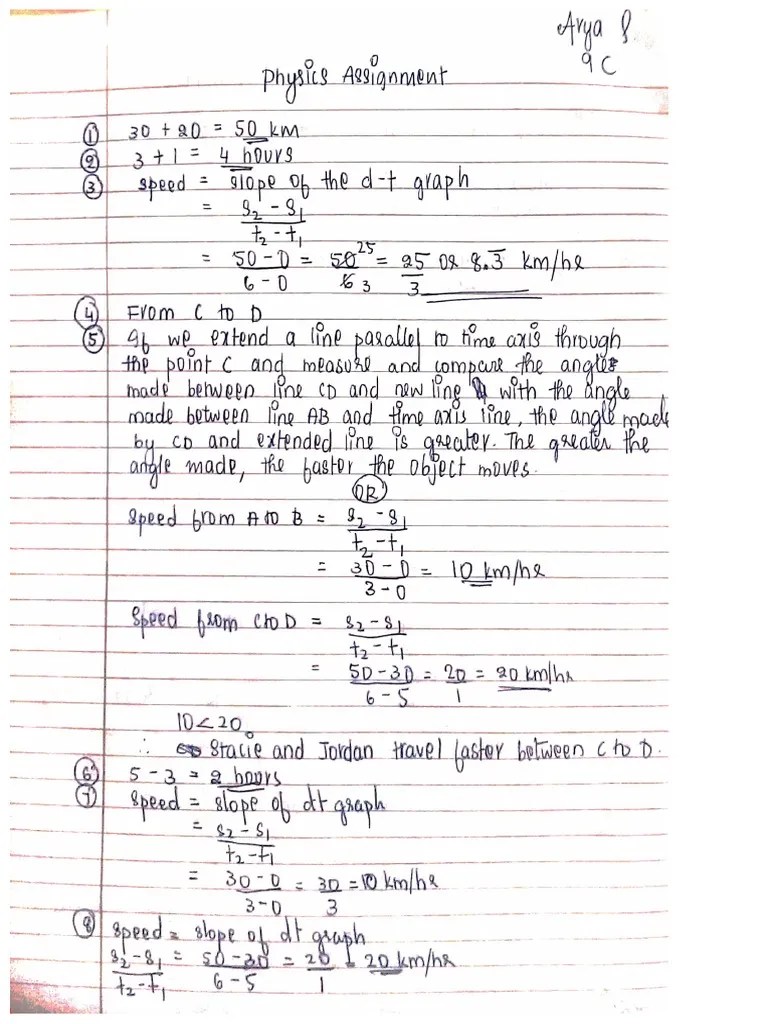 Arya S.
9C
Physics Assignment
① 30 + 20 = 50 km
② 3 + 1 = 4 hours
③ speed = slope of the d-t graph
= s₂ - s₁ / t₂ - t₁
= 50 - 0 / 6 - 0 = 50 25 / 6 3 = 25 / 3 or 8.3̅ km/hr
④ From C to D
⑤ If we extend a line parallel to time axis through
the point C and measure and compare the angles
made between line CD and new line with the angle
made between line AB and time axis line, the angle made
by CD and extended line is greater. The greater the
angle made, the faster the object moves.
OR
Speed from A to B = s₂ - s₁ / t₂ - t₁
= 30 - 0 / 3 - 0 = 10 km/hr
Speed from C to D = s₂ - s₁ / t₂ - t₁
= 50 - 30 / 6 - 5 = 20 / 1 = 20 km/hr
10 < 20
∴ Stacie and Jordan travel faster between C to D.
⑥ 5 - 3 = 2 hours
⑦ speed = slope of dt graph
= s₂ - s₁ / t₂ - t₁
= 30 - 0 / 3 - 0 = 30 / 3 = 10 km/hr
⑧ speed = slope of dt graph
s₂ - s₁ / t₂ - t₁ = 50 - 30 / 6 - 5 = 20 / 1 = 20 km/hr